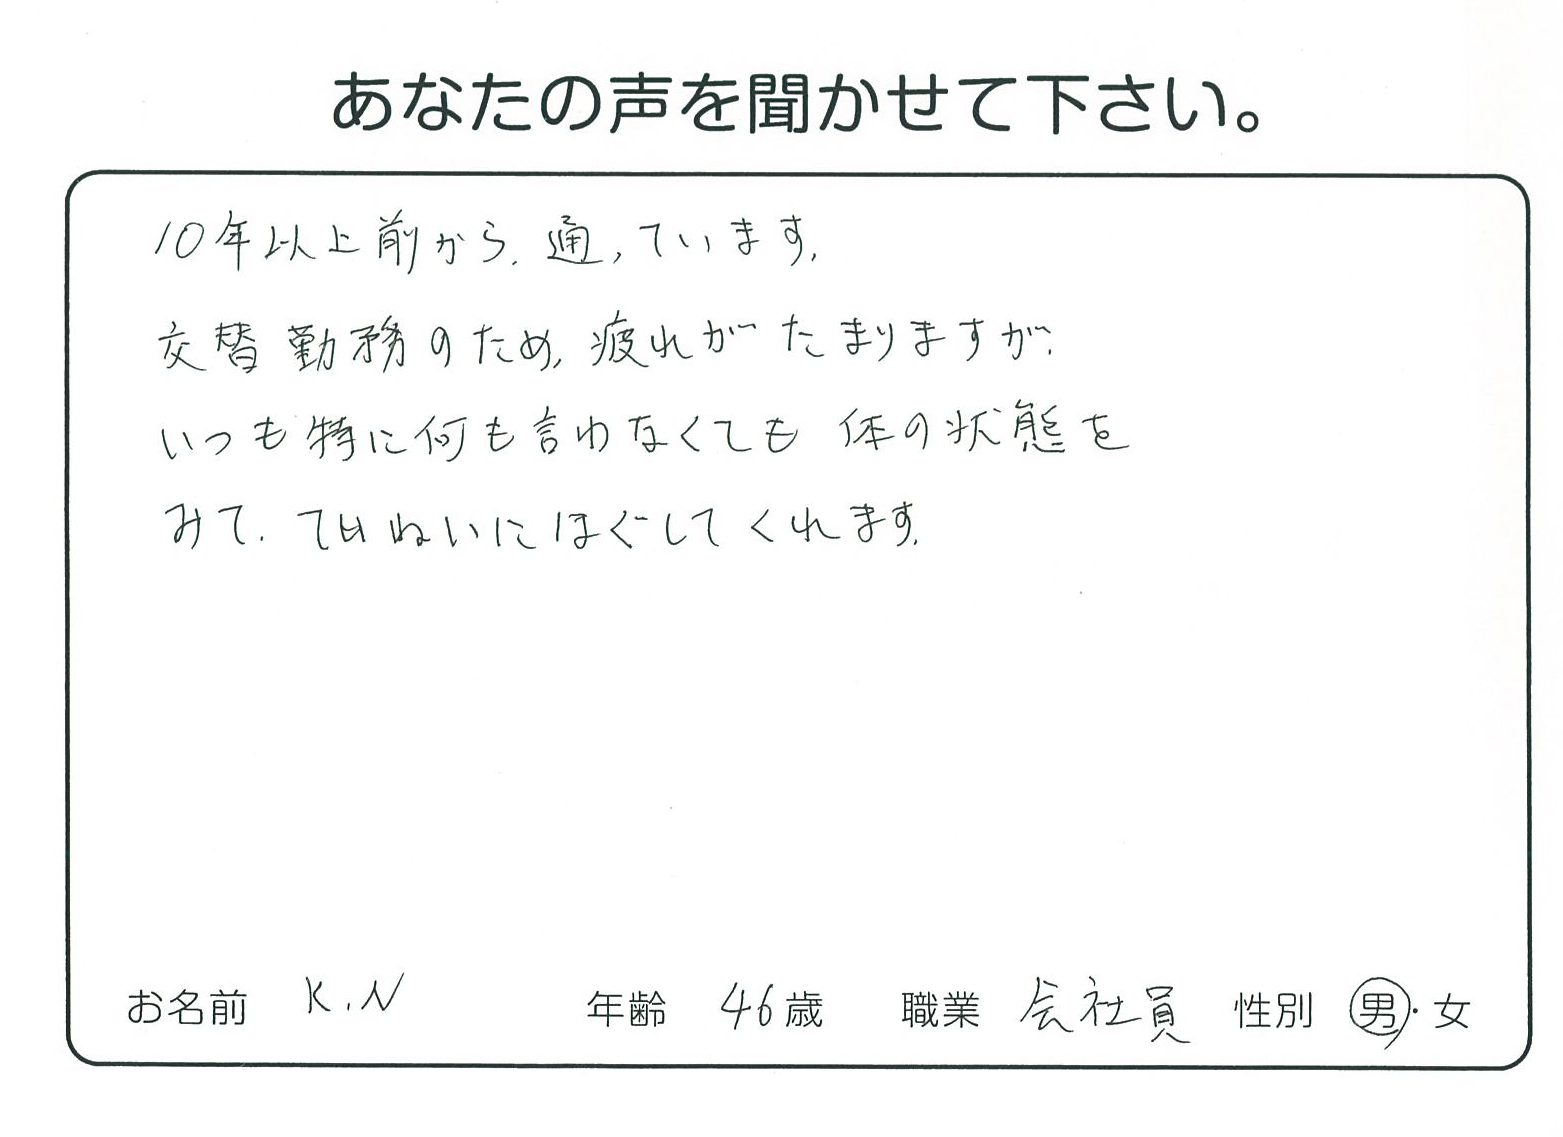 あなたの声を聞かせて下さい。
10年以上前から、通っています。
交替勤務のため、疲れがたまりますが、
いつも特に何も言わなくても 体の状態を
みて、ていねいにほぐしてくれます。
お名前 K.N 年齢 46歳 職業 会社員 性別 男・女